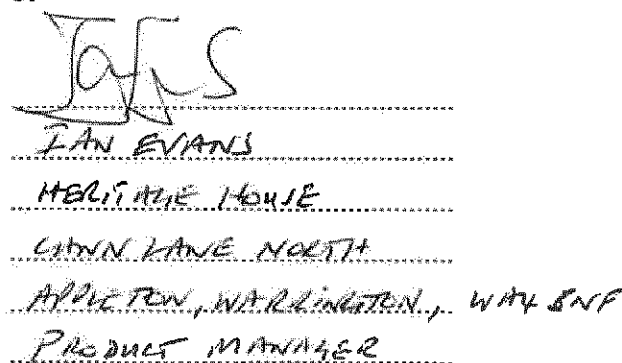 IAN EVANS
HERITAGE HOUSE
LANE NORTH
APPLETON, WARRINGTON, WA4 5NF
PRODUCT MANAGER